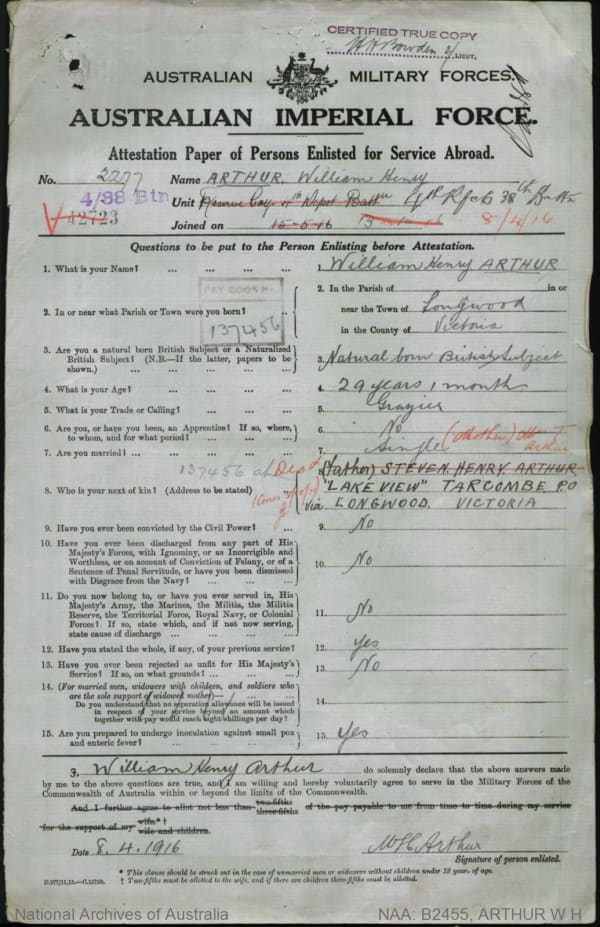 CERTIFIED TRUE COPY
LIEUT.
AUSTRALIAN MILITARY FORCES.
AUSTRALIAN IMPERIAL FORCE.
Attestation Paper of Persons Enlisted for Service Abroad.
No. 2277 Name ARTHUR. William Henry
4/38 Btn Unit 4th Rfcts 38th Battn
42723 Joined on 15-5-16 8/4/16
Questions to be put to the Person Enlisting before Attestation.
1. What is your Name? ... ... ... ... 1. William Henry ARTHUR
PAY BOOK No. 137456
2. In or near what Parish or Town were you born? 2. In the Parish of in or
near the Town of Longwood
in the County of Victoria
3. Are you a natural born British Subject or a Naturalized
British Subject? (N.B.—If the latter, papers to be
shown.) ... ... ... ... 3. Natural born British Subject
4. What is your Age? ... ... ... ... 4. 29 years 1 month
5. What is your Trade or Calling? ... ... ... 5. Grazier
6. Are you, or have you been, an Apprentice? If so, where,
to whom, and for what period? ... ... ... 6. No
7. Are you married? ... ... ... ... 7. Single (Mother) Arthur
137456 Dead
8. Who is your next of kin? (Address to be stated) 8. (father) STEVEN HENRY ARTHUR
"LAKE VIEW" TARCOMBE P.O
via LONGWOOD. VICTORIA
9. Have you ever been convicted by the Civil Power? ... 9. No
10. Have you ever been discharged from any part of His
Majesty's Forces, with Ignominy, or as Incorrigible and
Worthless, or on account of Conviction of Felony, or of a
Sentence of Penal Servitude, or have you been dismissed
with Disgrace from the Navy? ... ... ... 10. No
11. Do you now belong to, or have you ever served in, His
Majesty's Army, the Marines, the Militia, the Militia
Reserve, the Territorial Force, Royal Navy, or Colonial
Forces? If so, state which, and if not now serving,
state cause of discharge ... ... ... ... 11. No
12. Have you stated the whole, if any, of your previous service? 12. yes
13. Have you ever been rejected as unfit for His Majesty's
Service? If so, on what grounds? ... ... ... 13. No
14. (For married men, widowers with children, and soldiers who
are the sole support of widowed mother)—
Do you understand that no separation allowance will be issued
in respect of your service beyond an amount which
together with pay would reach eight shillings per day? 14.
15. Are you prepared to undergo inoculation against small pox
and enteric fever? ... ... ... ... 15. Yes
I, William Henry Arthur do solemnly declare that the above answers made
by me to the above questions are true, and I am willing and hereby voluntarily agree to serve in the Military Forces of the
Commonwealth of Australia within or beyond the limits of the Commonwealth.
And I further agree to allot not less than two-fifths three-fifths of the pay payable to me from time to time during my service
for the support of my wife.*† wife and children.
Date 8.4.1916 W H Arthur
Signature of person enlisted.
* This clause should be struck out in the case of unmarried men or widowers without children under 18 years of age.
† Two-fifths must be allotted to the wife, and if there are children three-fifths must be allotted.
National Archives of Australia NAA: B2455, ARTHUR W H